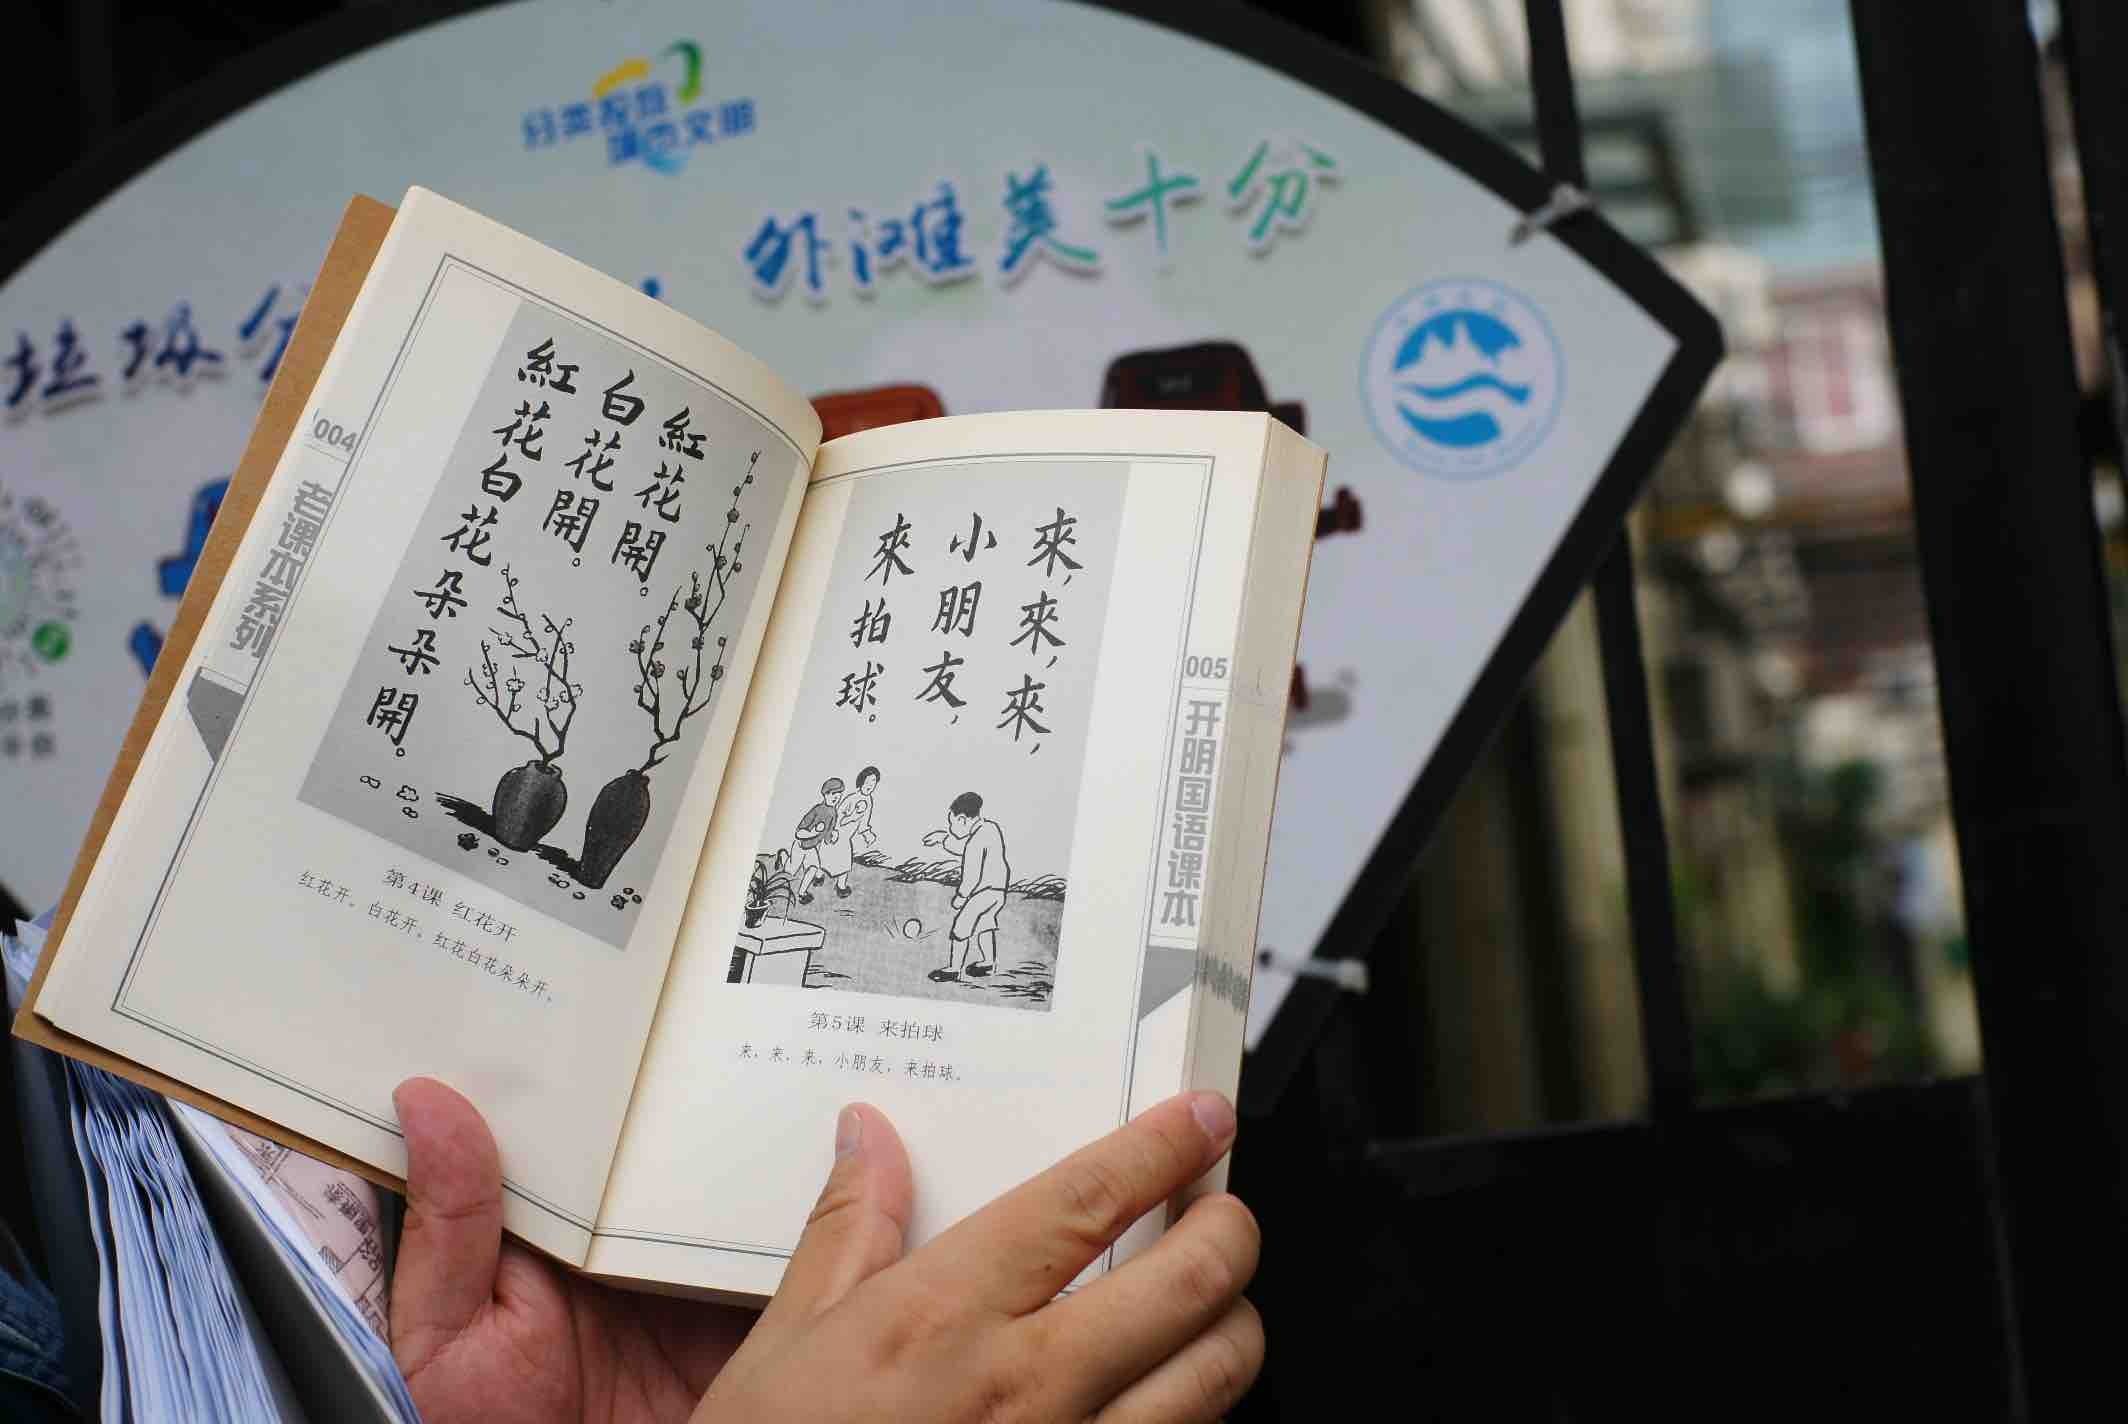 分类投放
绿色文明
外滩美十分
垃圾分
004
老课本系列
紅花開。
白花開。
紅花白花朵朵開。
第4课 红花开
红花开。白花开。红花白花朵朵开。
005
开明国语课本
來，來，來，
小朋友，
來拍球。
第5课 来拍球
来，来，来，小朋友，来拍球。